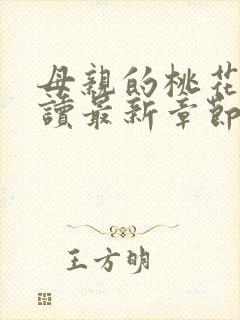 母親的桃花
讀最新章節
王方明